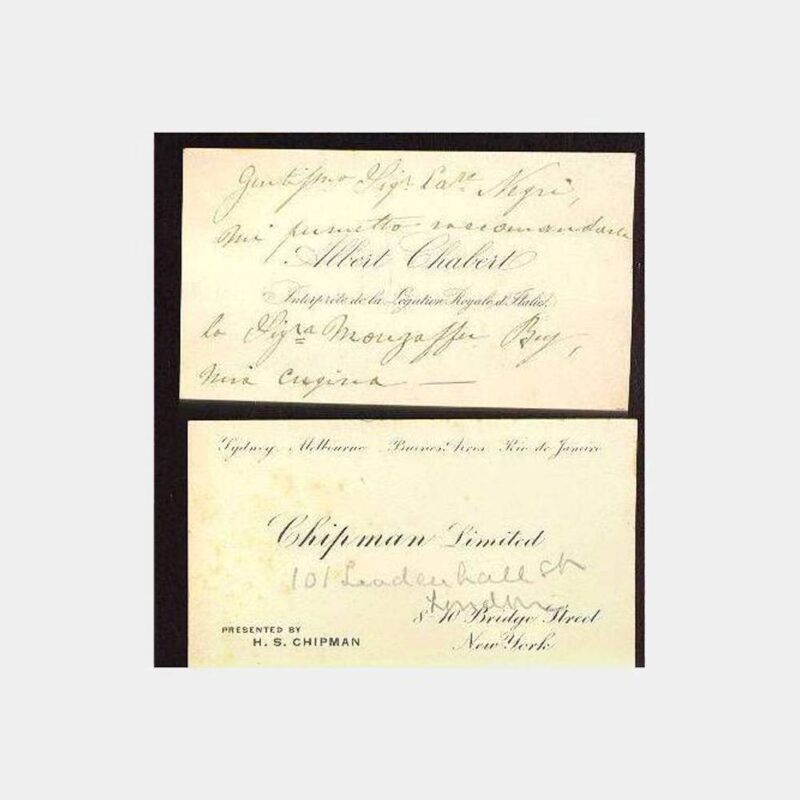 Gentissmo Sigr Cave Negri,
mi permetto raccomandarle
Albert Chabert
Interprète de la Légation Royale d'Italie.
la Sigra Mouzaffer Bey,
mia cugina —
Sydney Melbourne Buenos Aires Rio de Janeiro
Chipman Limited
101 Leadenhall St
London
8-10 Bridge Street
PRESENTED BY
H. S. CHIPMAN
New York